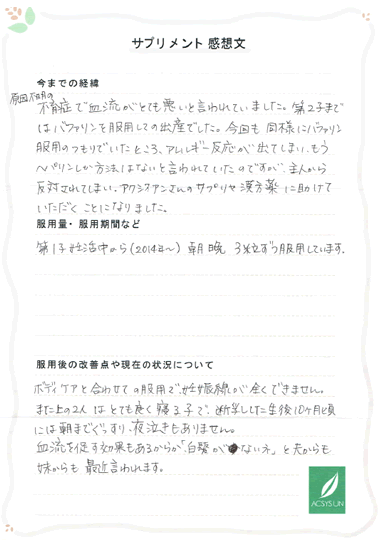 サプリメント 感想文
今までの経緯
原因不明の
不育症で血流がとても悪いと言われていました。第2子まで
はバファリンを服用しての出産でした。今回も同様にバファリン
服用のつもりでいたところ、アレルギー反応が出てしまい、もう
ヘパリンしか方法はないと言われていたのですが、主人から
反対されてしまい、アクシスアンさんのサプリや漢方薬に助けて
いただくことになりました。
服用量・服用期間など
第1子妊活中から(2014年〜) 朝晩 3粒ずつ服用しています。
服用後の改善点や現在の状況について
ボディケアと合わせての服用で、妊娠線が全くできません。
また上の2人はとても良く寝る子で、断乳した生後10ヶ月頃
には朝までぐっすり、夜泣きもありません。
血流を促す効果もあるからか「白髪がないネ」と夫からも
妹からも最近言われます。
ACSYSUN